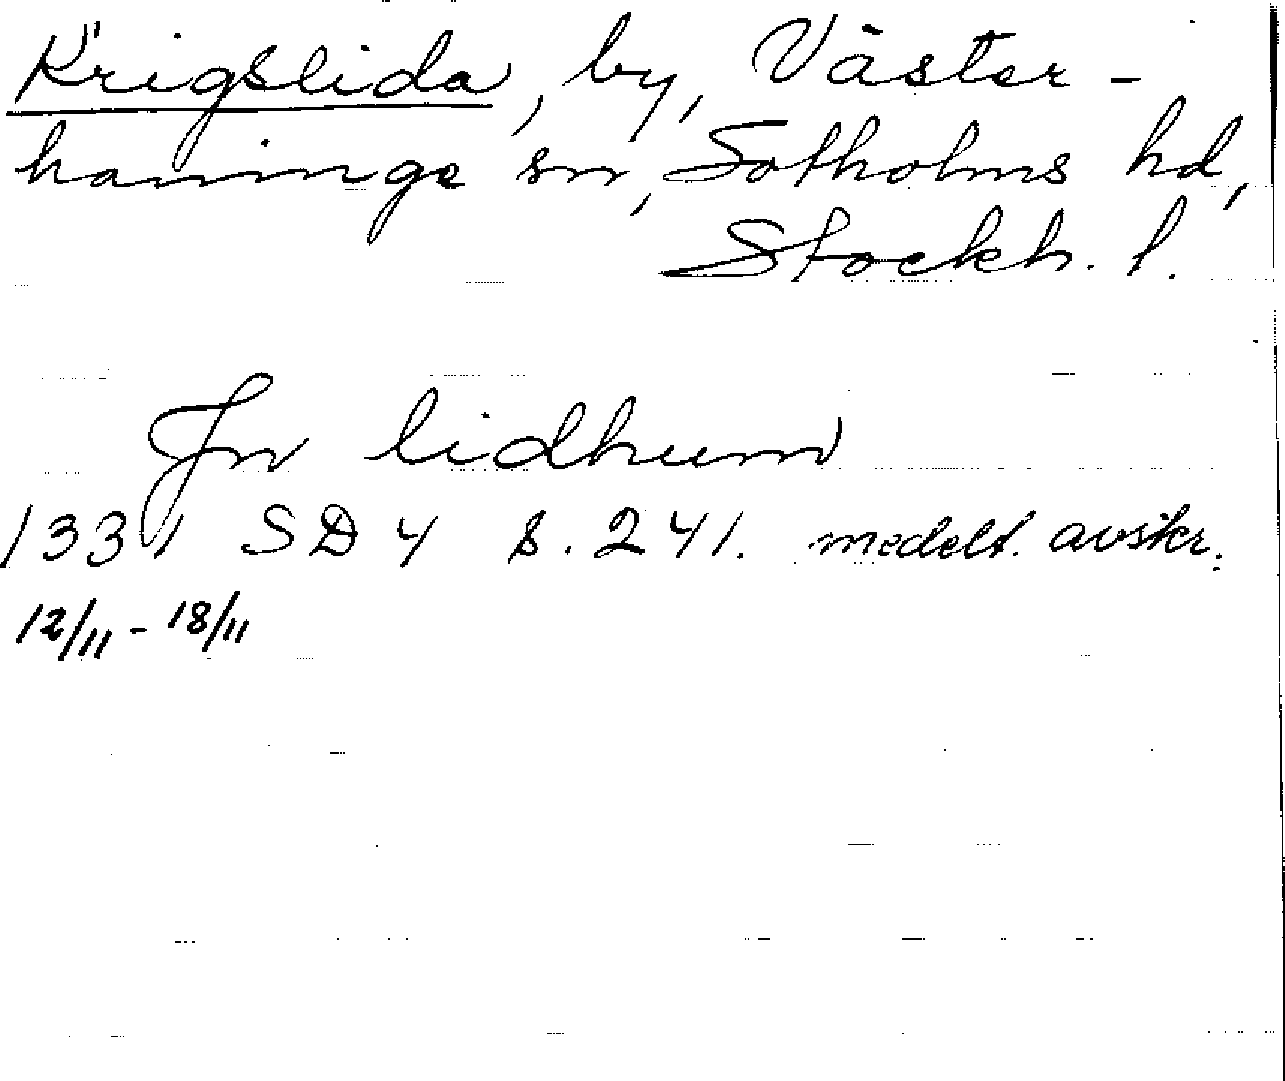 Krigslida, by, Väster-
haninge sn, Sotholms hd,
Stockh. l.
Jn lidhum
1331 SD 4 s. 241. medelt. avskr.
12/11 - 18/11